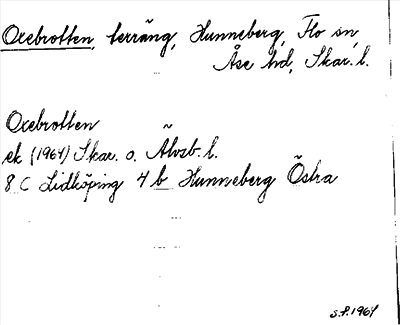 Oxebrotten, terräng, Hunneberg, Flo sn,
Åse hd, Skar. l.
Oxebrotten
ek (1964) Skar. o. Älvsb. l.
8 C Lidköping 4 b Hunneberg Östra
S.F. 1964